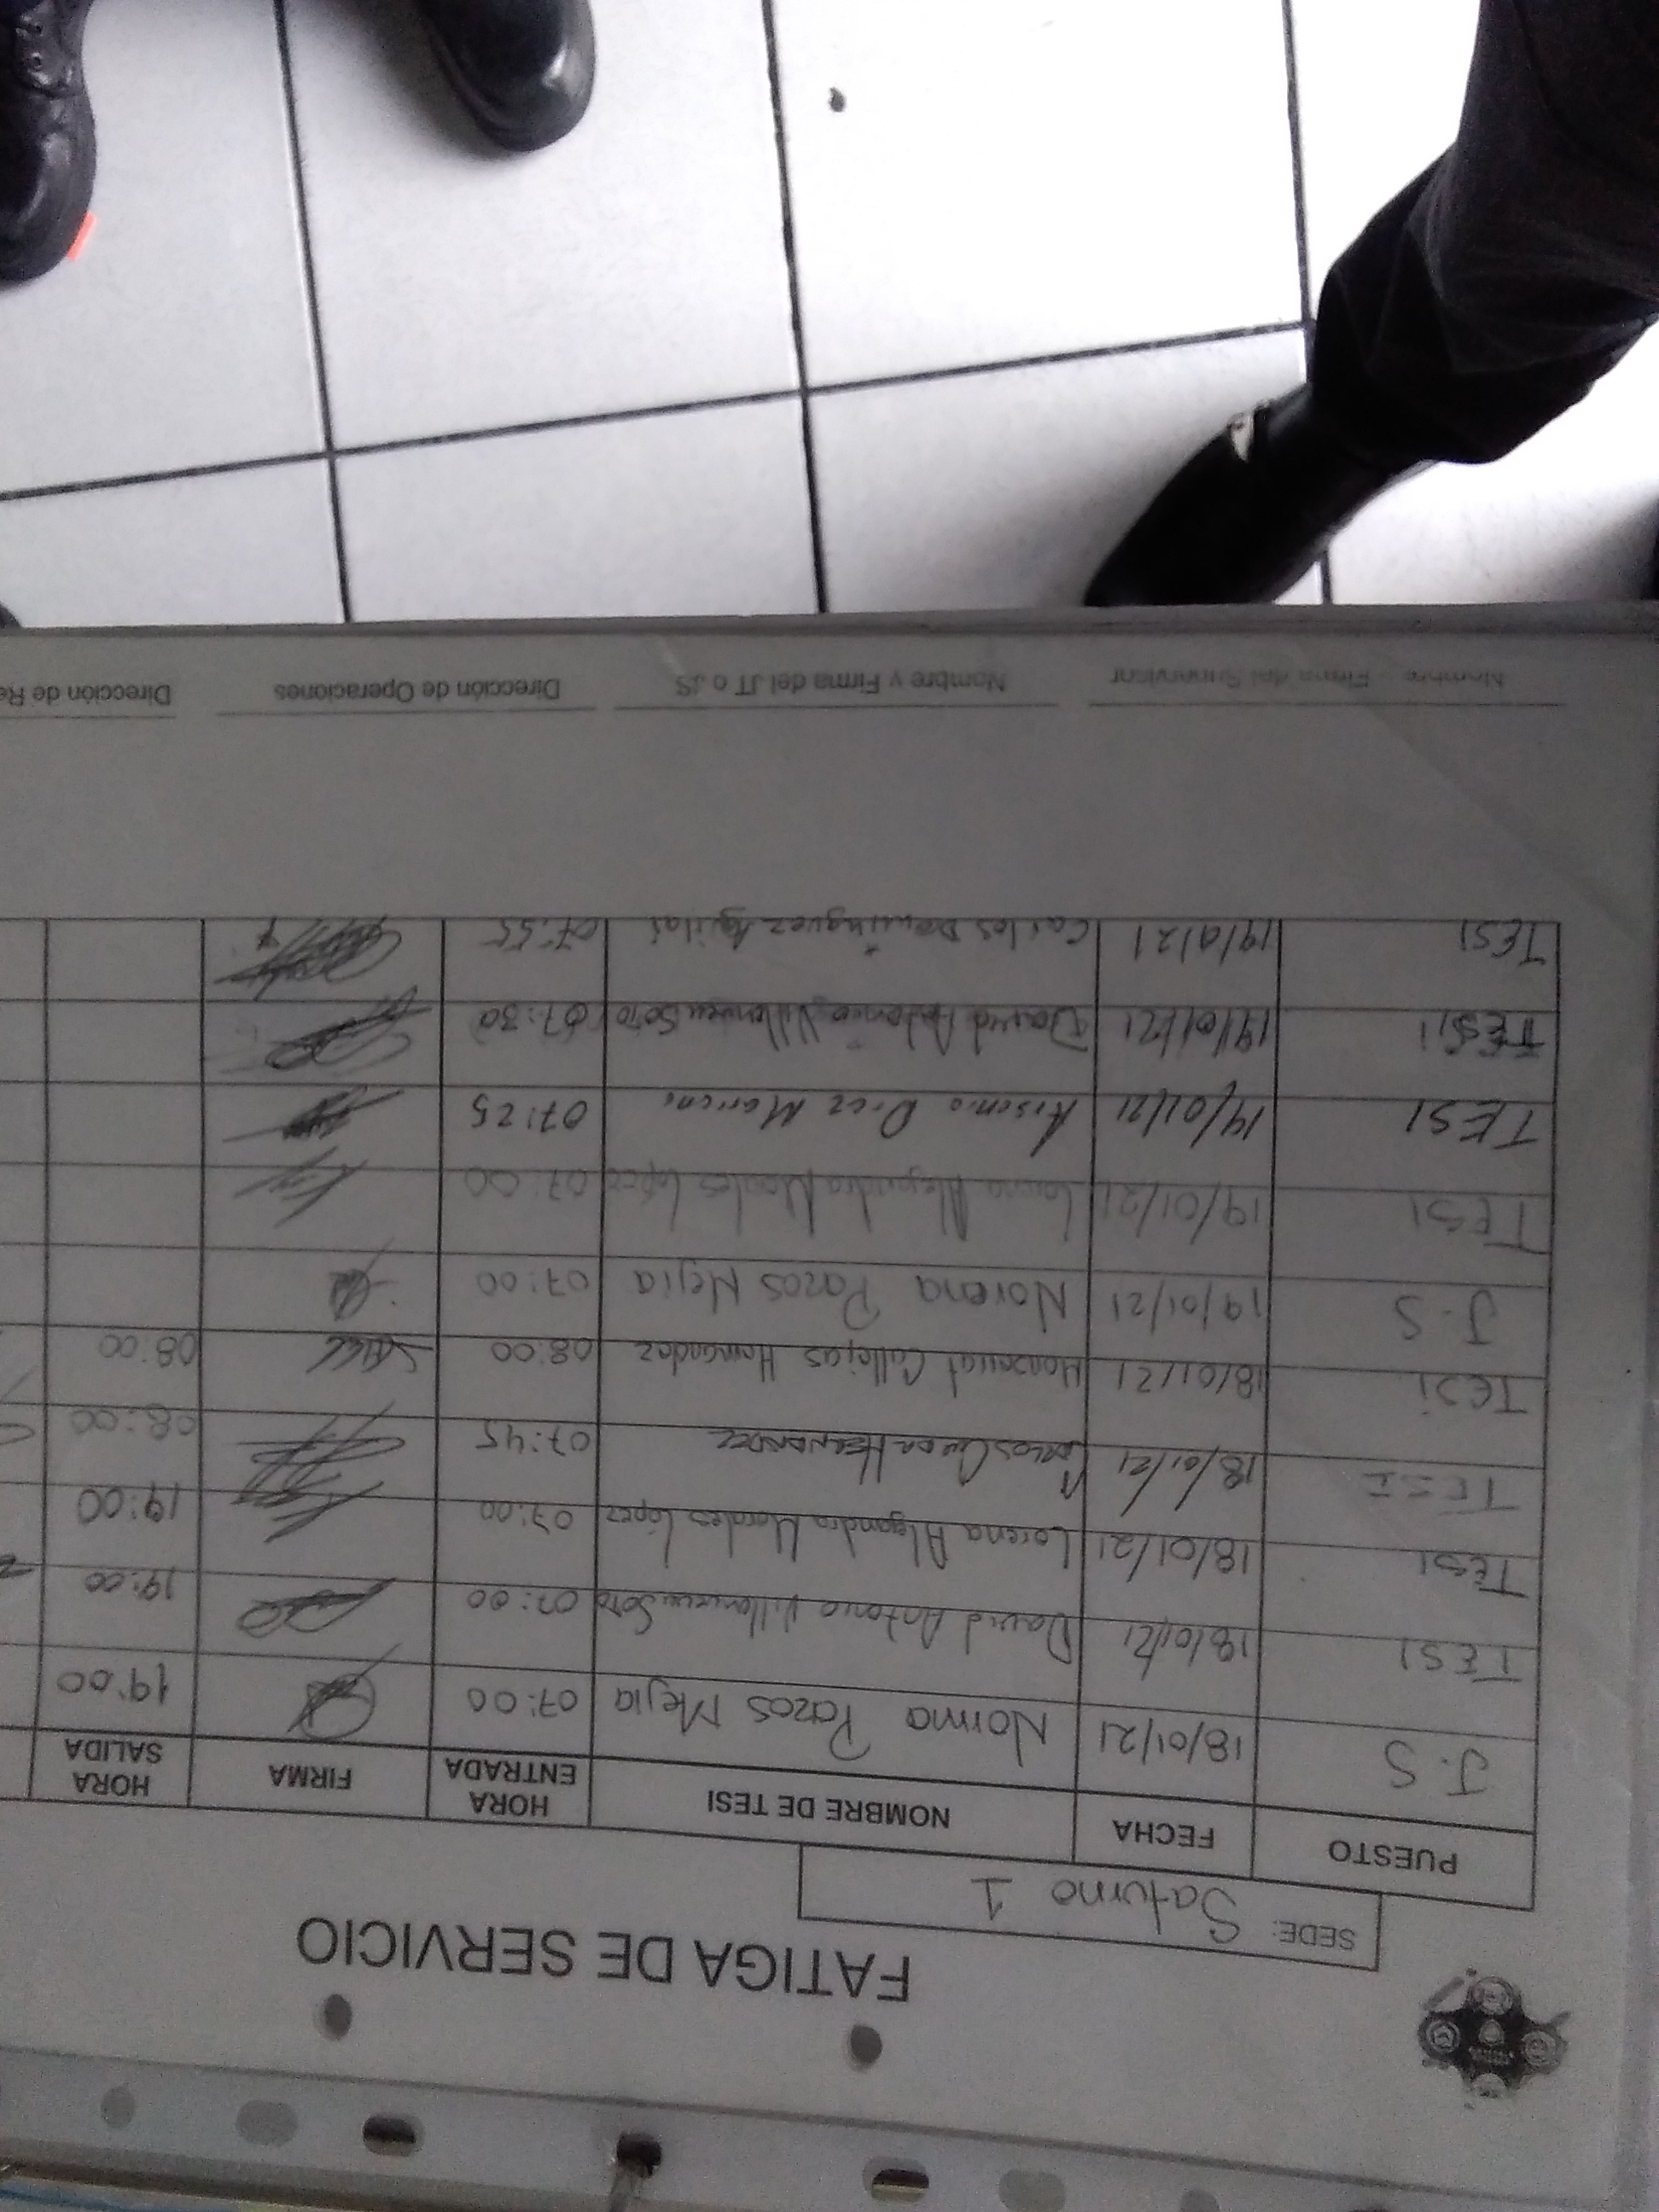 FATIGA DE SERVICIO
SEDE: Saturno 1
PUESTO FECHA NOMBRE DE TESI HORA ENTRADA FIRMA HORA SALIDA
J.S 18/01/21 Norma Pazos Mejia 07:00 19:00
TESI 18/01/21 David Antonio Villanueva Soto 07:00 19:00
TESI 18/01/21 Lorena Alejandra Morales López 07:00 19:00
TESI 18/01/21 HERNANDEZ 07:45 08:00
TESI 18/01/21 Monserrat Callejas Hernandez 08:00 08:00
J.S 19/01/21 Norena Pazos Mejia 07:00
TESI 19/01/21 Lorena Alejandra Morales López 07:00
TESI 19/01/21 Arsenio Diez 07:25
TESI 19/01/21 David Antonio Villanueva Soto 07:30
TESI 19/01/21 Carlos Dominguez Aguilar 07:55
Nombre y Firma del Supervisor Nombre y Firma del JT o JS Dirección de Operaciones Dirección de Re